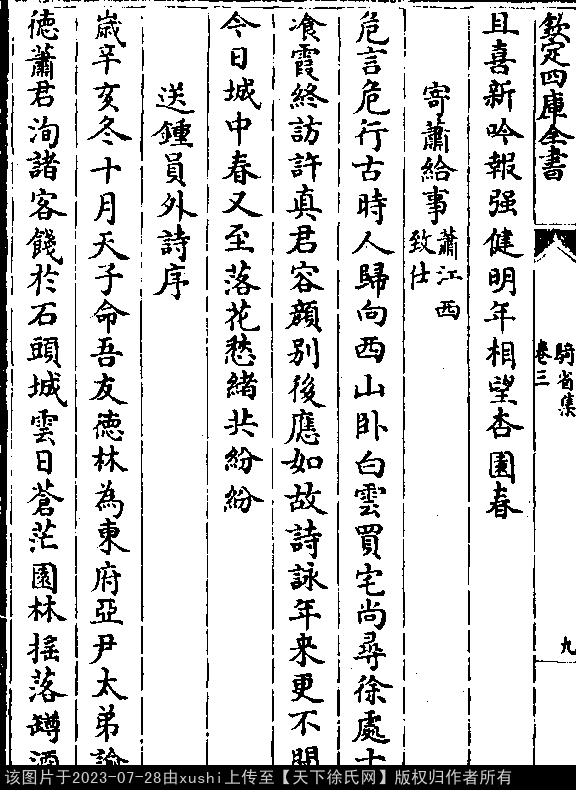 欽定四庫全書
騎省集
卷三
九
且喜新吟報强健明年相望杏園春
寄蕭給事
蕭江西
致仕
危言危行古時人歸向西山卧白雲買宅尚尋徐處士
飡霞終訪許真君容顔別後應如故詩詠年来更不聞
今日城中春又至落花愁緒共紛紛
送鍾員外詩序
嵗辛亥冬十月天子命吾友徳林為東府亞尹太弟諭
徳蕭君洵諸客餞於石頭城雲日蒼茫園林搖落罇酒
该图片于2023-07-28由xushi上传至【天下徐氏网】版权归作者所有